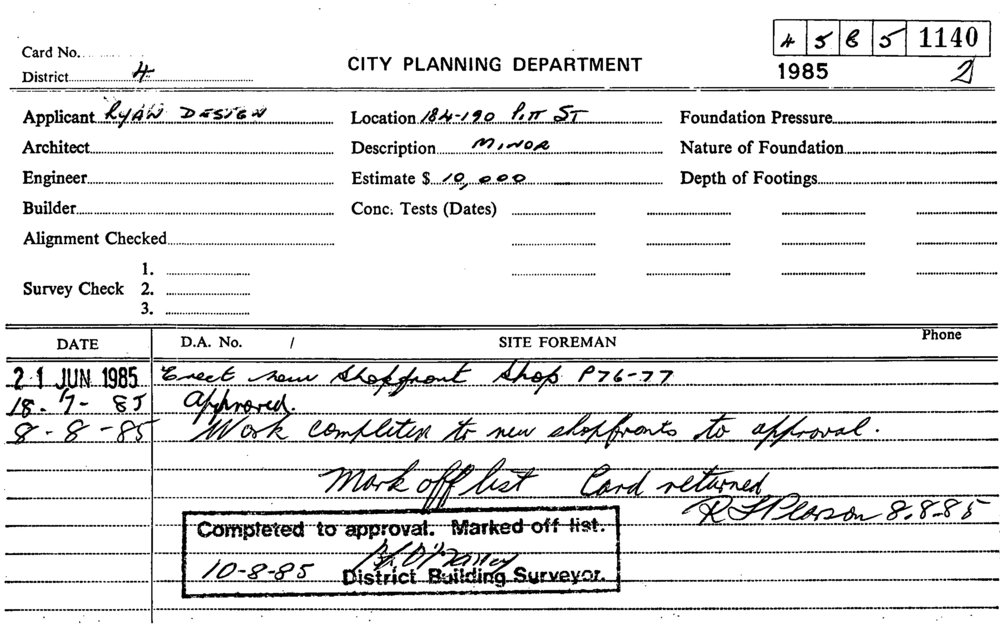 Card No.
4 5 8 5 1140
District 4
CITY PLANNING DEPARTMENT
1985 2
Applicant RYAN DESIGN Location 184-190 PITT ST Foundation Pressure
Architect Description MINOR Nature of Foundation
Engineer Estimate $ 10,000 Depth of Footings
Builder Conc. Tests (Dates)
Alignment Checked
1.
Survey Check 2.
3.
DATE D.A. No. / SITE FOREMAN Phone
21 JUN 1985 Erect new shopfront shop P76-77
18-7-85 Approved.
8-8-85 Work completed to new shopfronts to approval.
Mark off list Card returned
8.8.85
Completed to approval. Marked off list.
10-8-85 District Building Surveyor.